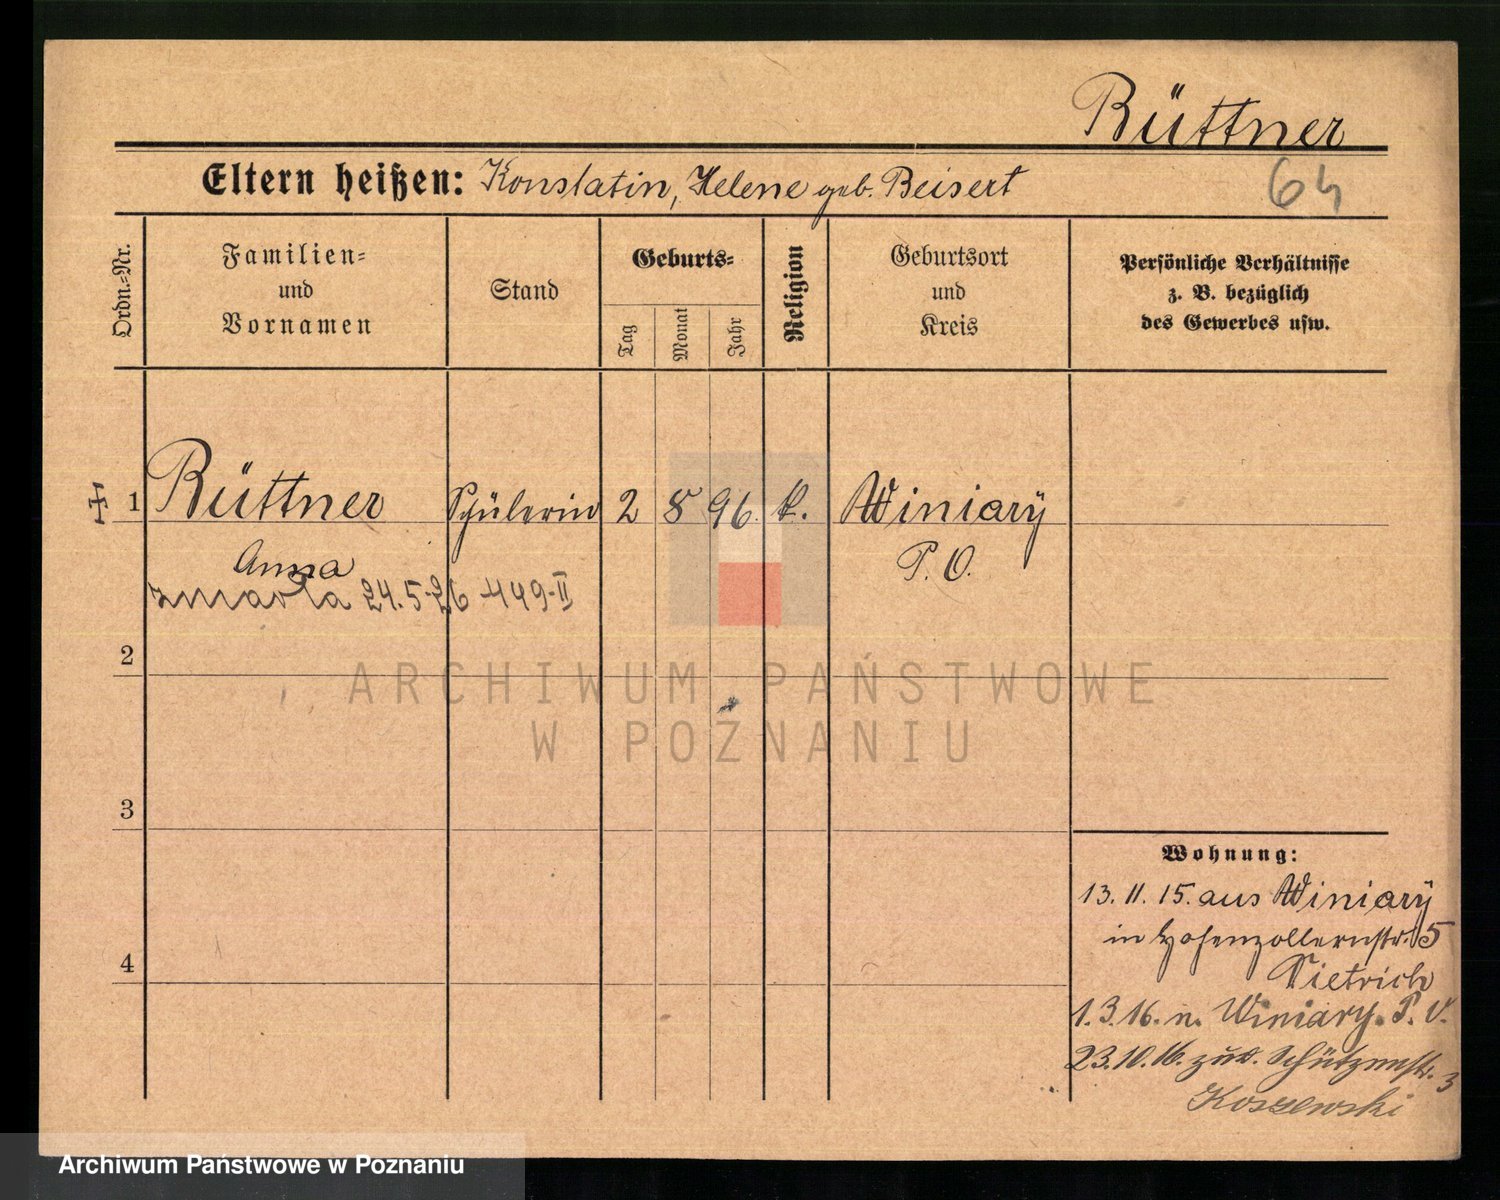 Rüttner
64
Eltern heißen: Konstatin, Helene geb. Beisert
Ordn.-Nr.
Familien-
und
Vornamen
Stand
Geburts-
Tag
Monat
Jahr
Religion
Geburtsort
und
Kreis
Persönliche Verhältnisse
z. B. bezüglich
des Gewerbes usw.
1 Rüttner Schülerin 2 8 96. k. Winiary
Anna P. O.
zmarła 24.5.26 449-II
2
ARCHIWUM PAŃSTWOWE
W POZNANIU
3
Wohnung:
13. 11. 15. aus Winiary
in Hohenzollernstr. 5
Dietrich
4
1.3.16. n. Winiary. P. O.
23.10.16. zud. Schützenstr. 3
Koszewski
Archiwum Państwowe w Poznaniu